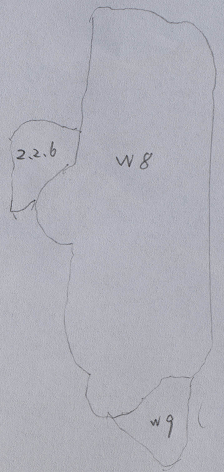 2.2.6
W8
W9